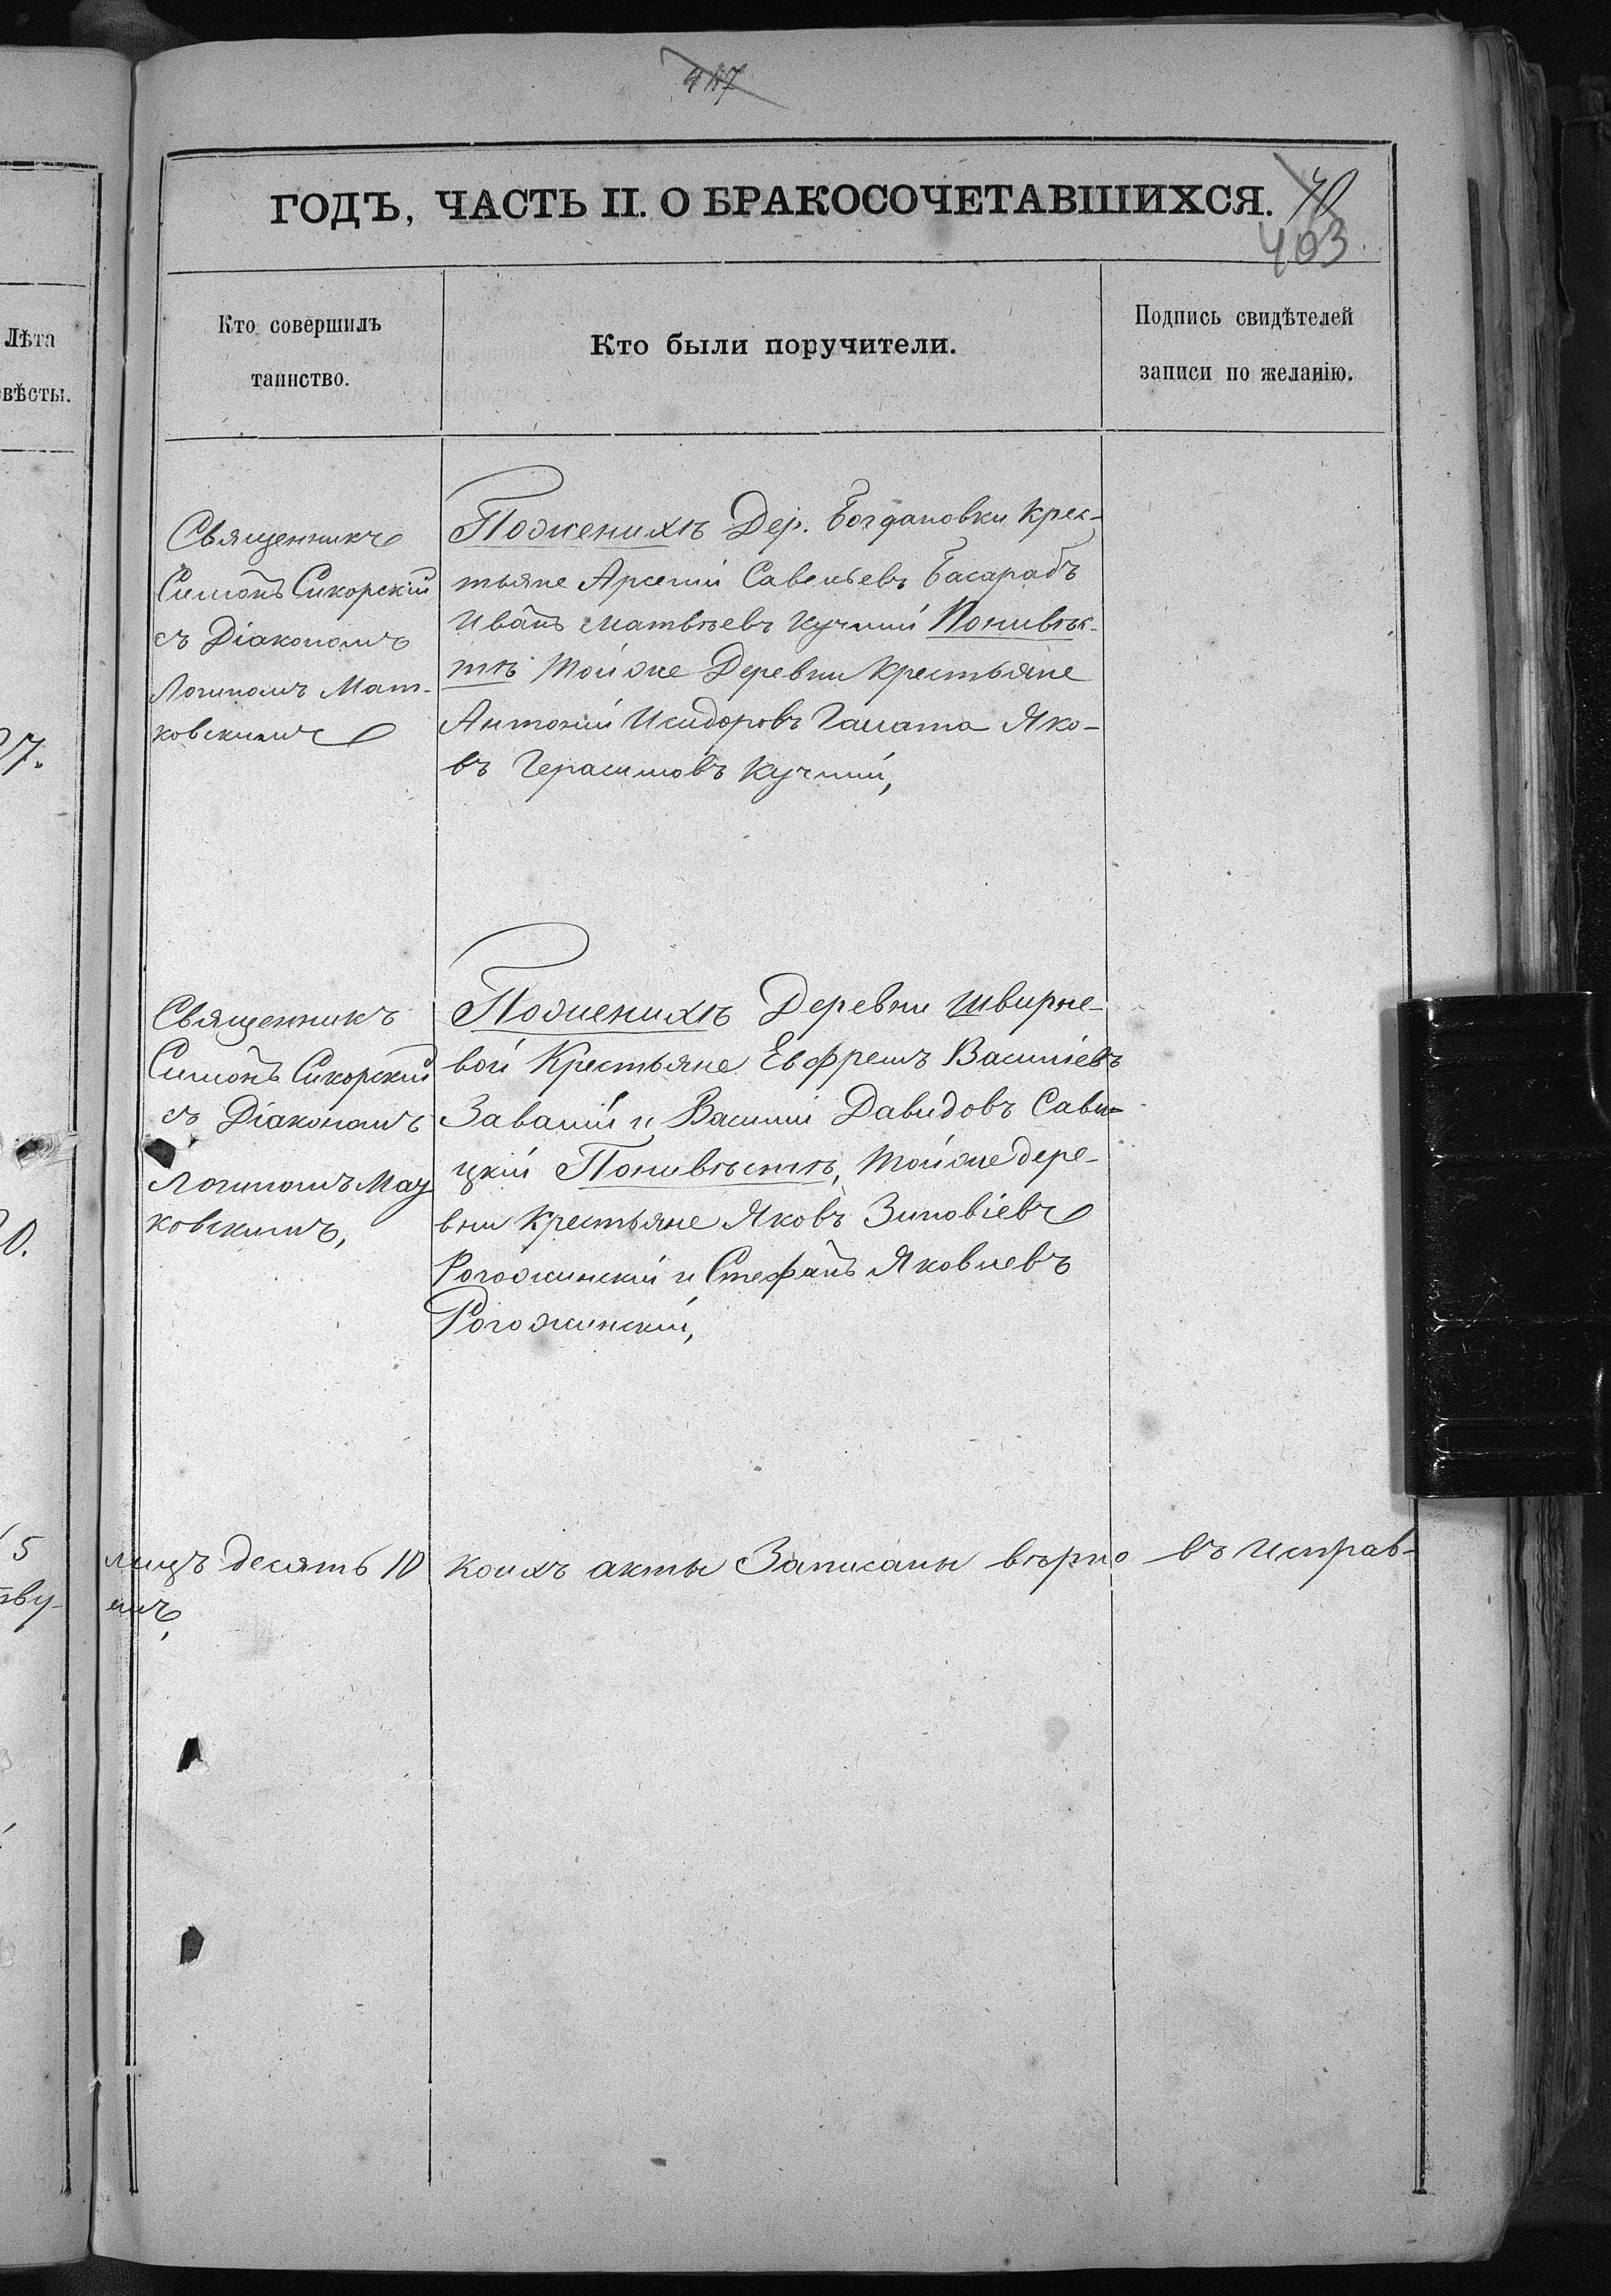 417
ГОДЪ, ЧАСТЬ II. О БРАКОСОЧЕТАВШИХСЯ.
403
Лѣта
вѣсты.
Кто совершилъ
таинство.
Кто были поручители.
Подпись свидѣтелей
записи по желанію.
Священникъ
Симонъ Сикорскій
съ Діакономъ
Логиномъ Мат-
ковскимъ
Поженихѣ Дер. Богдановки крес-
тьяне Арсеній Савельевъ Басарабъ
Иванъ Матвѣевъ Кучмій Поневѣс-
тѣ той же Деревни крестьяне
Антоній Исидоровъ Гамата Яко-
въ Герасимовъ Кучмій,
7.
Священникъ
Симонъ Сикорскій
съ Діакономъ
Логиномъ Мац
ковскимъ,
Поженихѣ Деревни Швырне-
вой Крестьяне Евфремъ Василіевъ
Завалій и Василій Давидовъ Сави-
цкій Поневѣстѣ, той же дере-
вни крестьяне Яковъ Зиновіевъ
Рогожинскій и Стефанъ Яковлевъ
Рогожинскій,
0.
5
лицъ десять 10 коихъ акты Записаны вѣрно въ исправ-
тву-